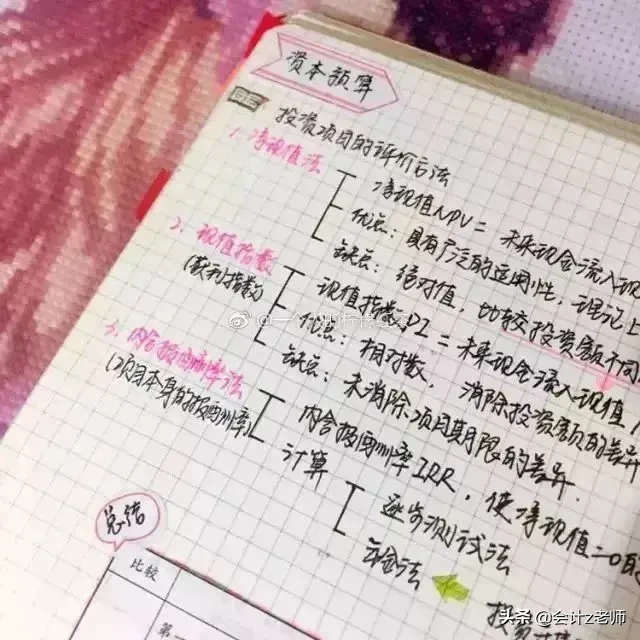 资本预算
投资项目的评价方法
1. 净现值法
净现值NPV = 未来现金流入现
优点: 具有广泛的适用性, 理论上
缺点: 绝对值, 比较投资额不同
2. 现值指数
(获利指数)
现值指数PI = 未来现金流入现值/
优点: 相对数, 消除投资额的差异
缺点: 未消除项目期限的差异.
3. 内含报酬率法
(项目本身的报酬率)
内含报酬率IRR, 使净现值=0的
计算
逐步测试法
年金法
总结
比较
第一
投资
头条 @会计z老师